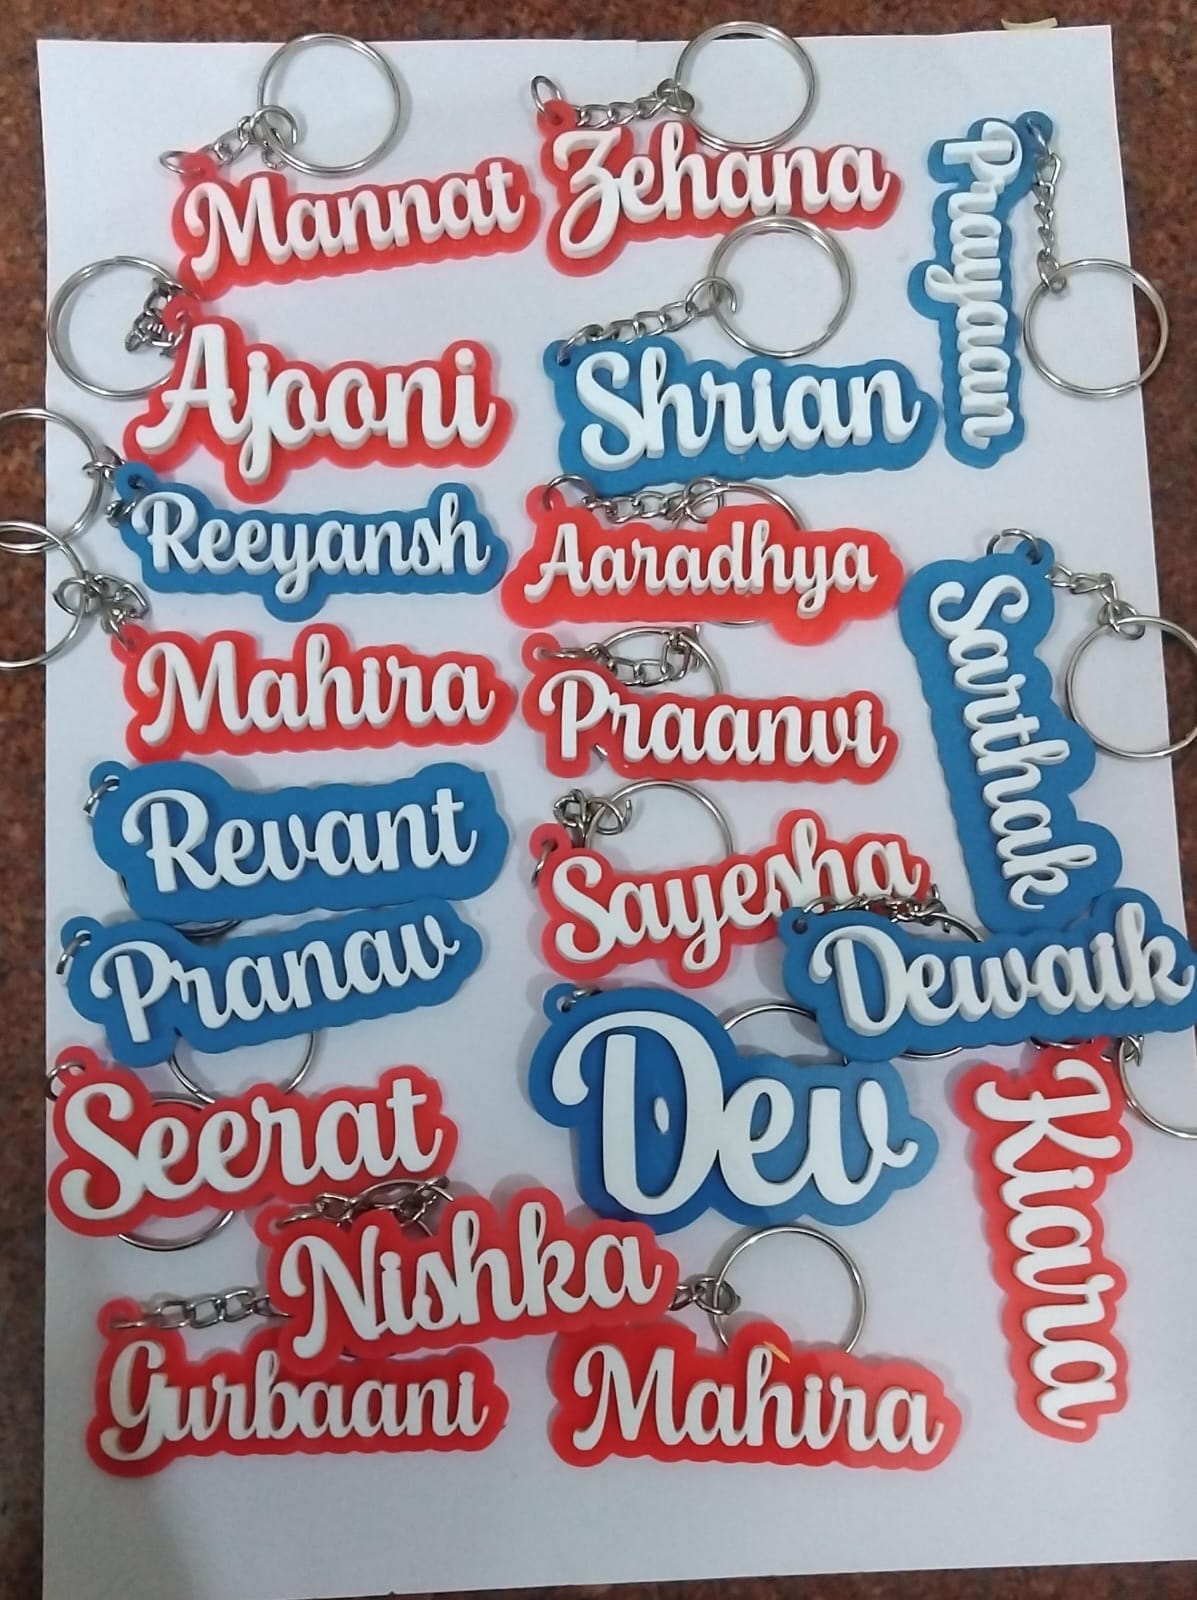 Mannat
Zehana
Prayaan
Ajooni
Shrian
Reeyansh
Aaradhya
Sarthak
Mahira
Praanvi
Revant
Sayesha
Pranav
Dewaik
Seerat
Dev
Kiara
Nishka
Gurbaani
Mahira